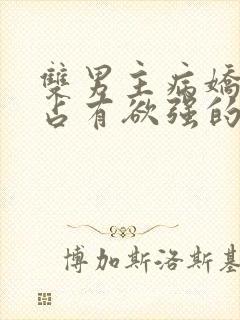 雙男主病嬌
占有欲強的
博加斯洛斯基